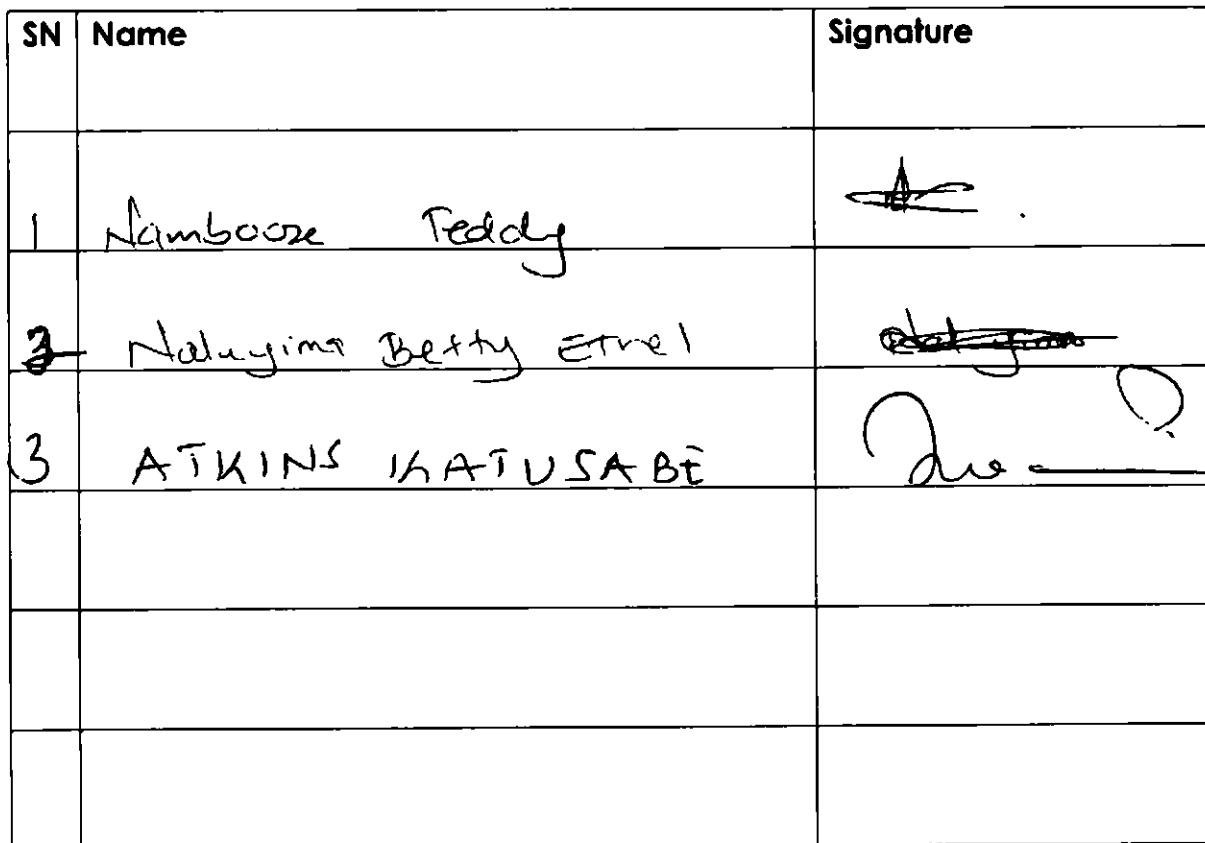 SN Name Signature
1 Nambooze Teddy
2 Naluyima Betty Ethel
3 ATKINS KATUSABE